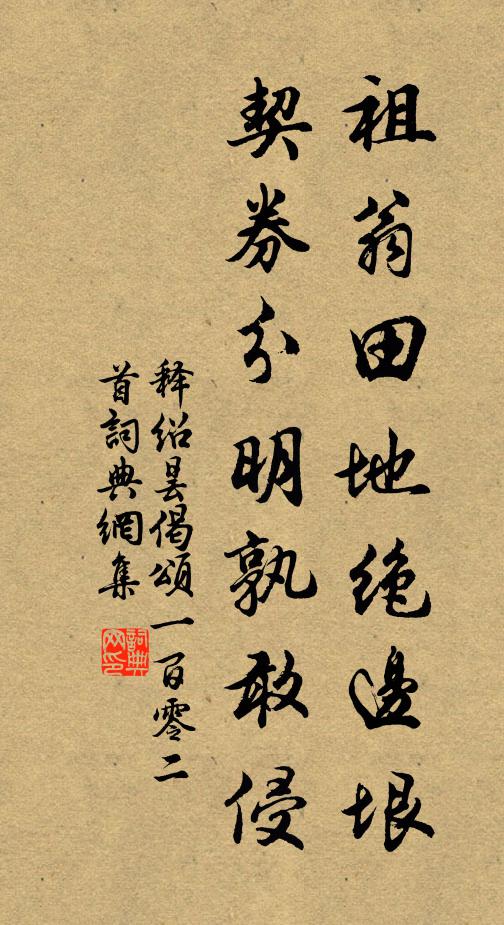 祖翁田地絶邊垠
契券分明孰敢侵
释紹曇偈頌一百零二
首詞典網集
詞典
网印